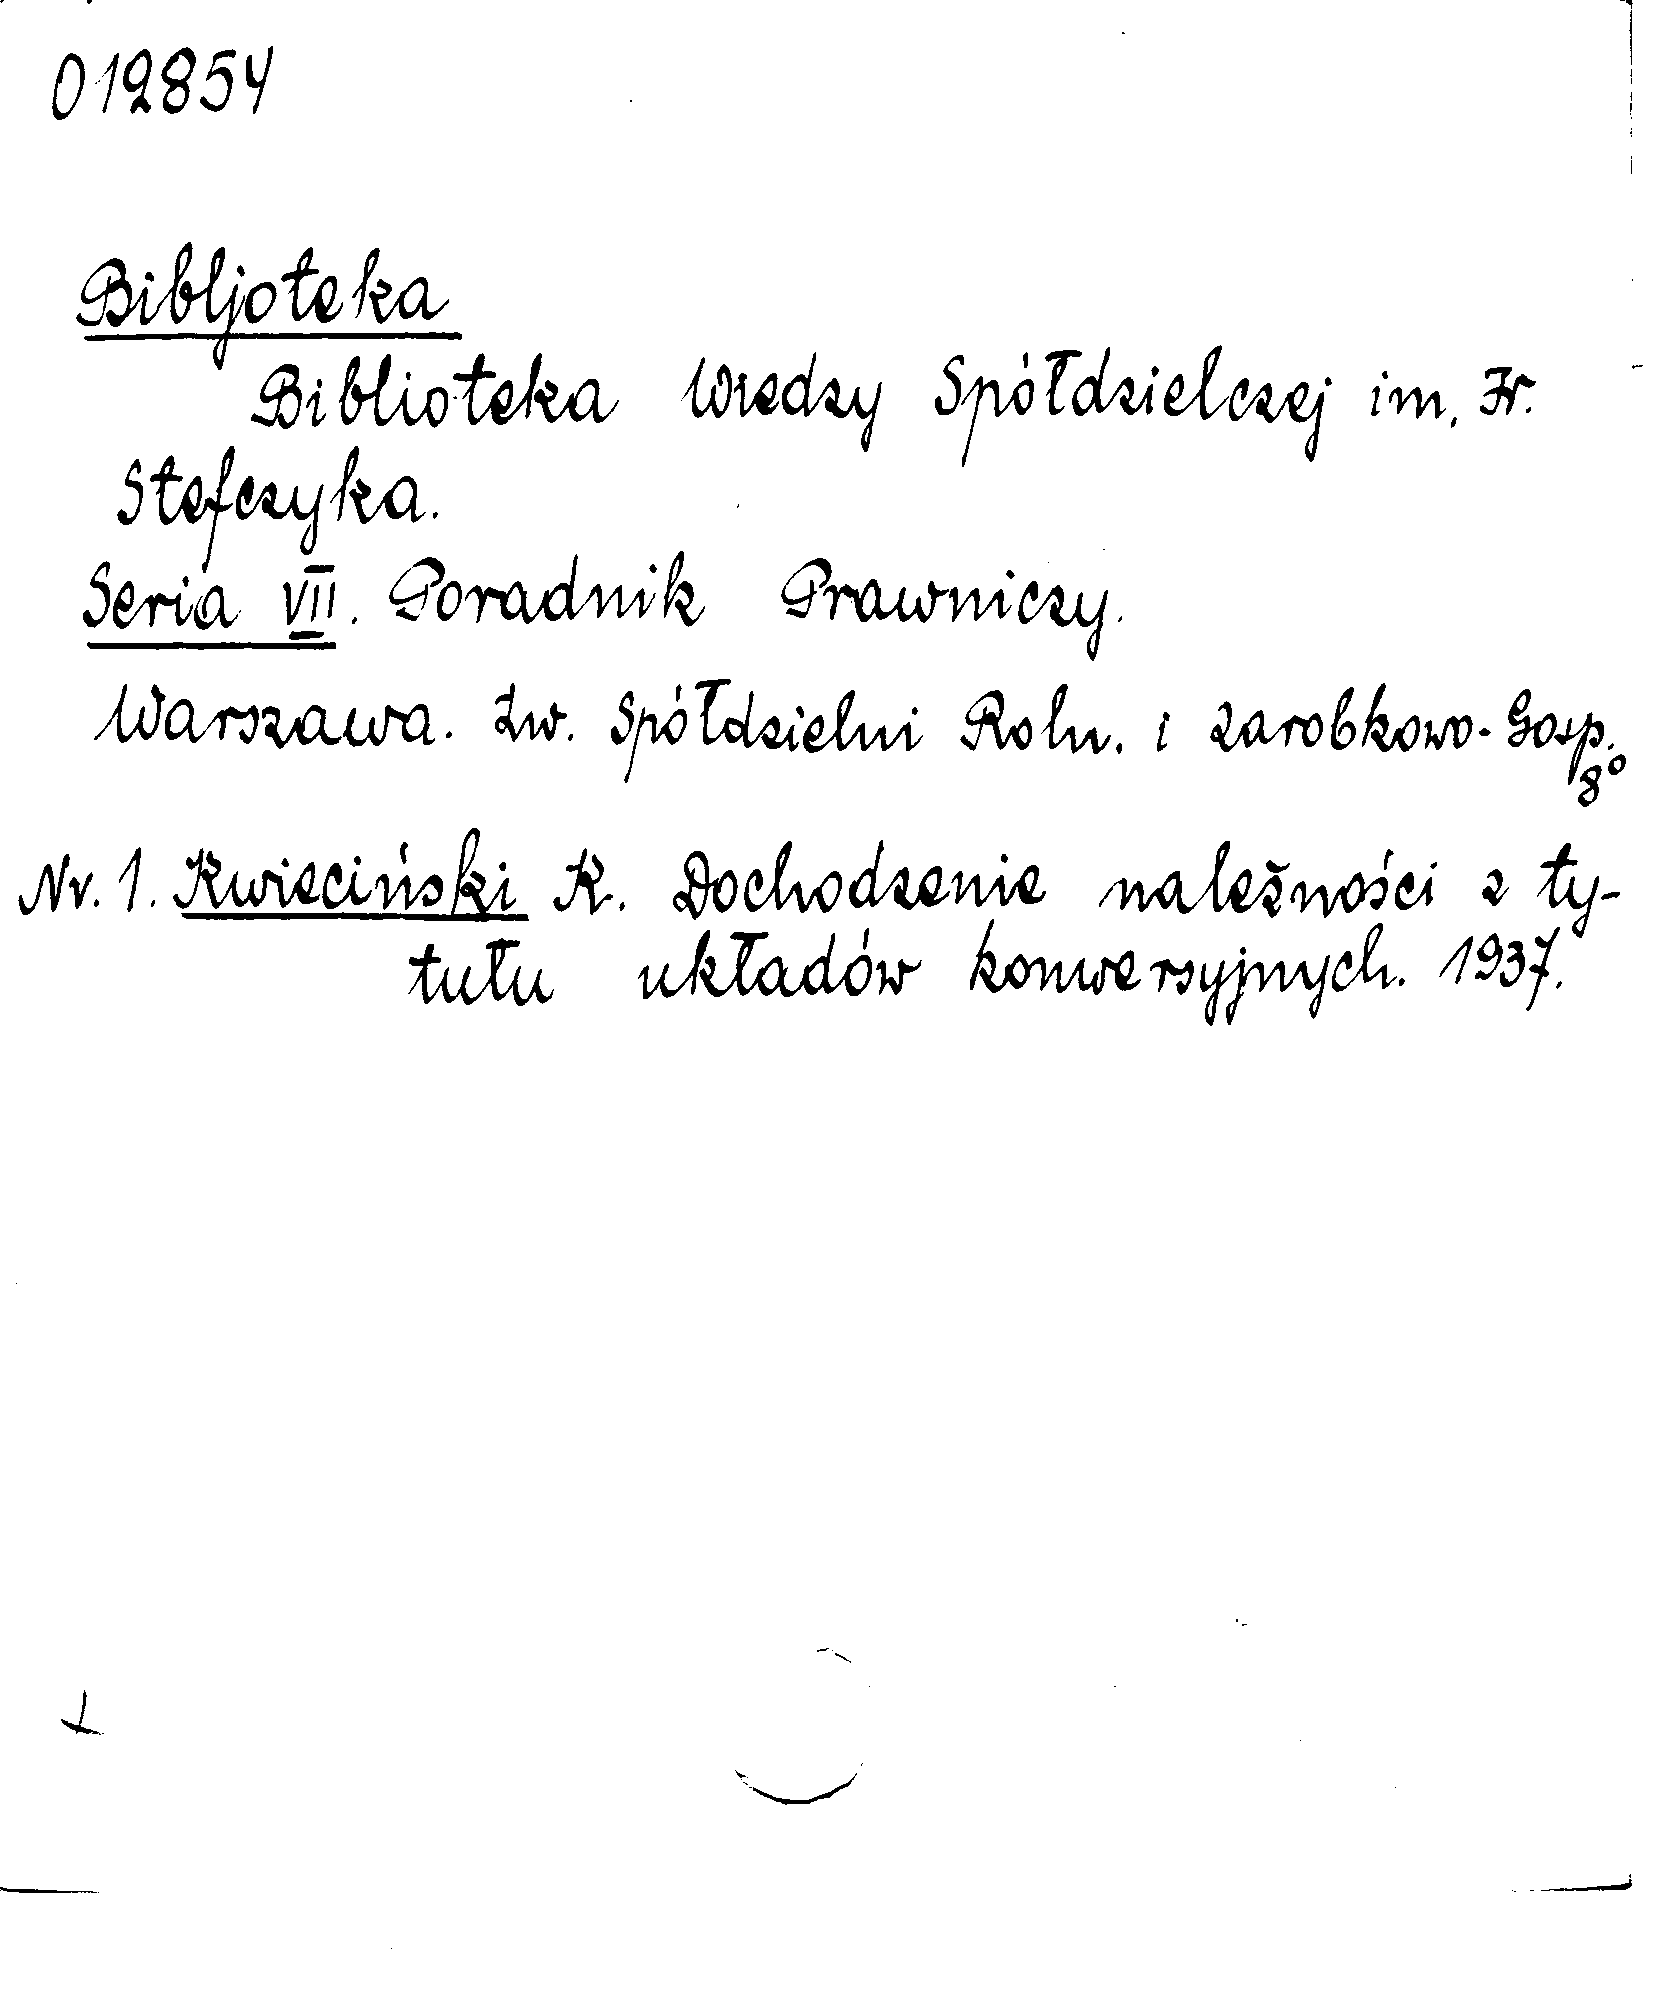 012854
Bibljoteka
Biblioteka Wiedzy Spółdzielczej im. Fr.
Stefczyka.
Seria VII. Poradnik Prawniczy.
Warszawa. Zw. Spółdzielni Roln. i zarobkowo-Gosp.
8°
Nr. 1. Kwieciński K. Dochodzenie należności z ty-
tułu układów konwersyjnych. 1937.